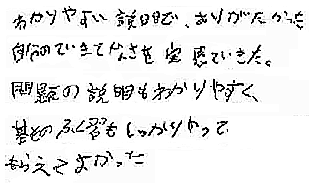 わかりやすい説明で、ありがたかった
自分のできてなさを実感できた。
問題の説明もわかりやすく、
基その ふく習もしっかりやって
もらえてよかった